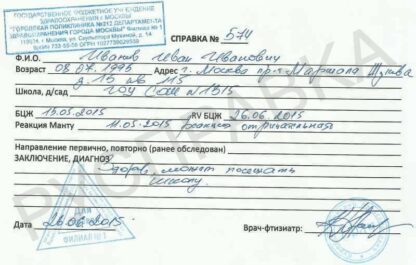 ГОСУДАРСТВЕННОЕ БЮДЖЕТНОЕ УЧРЕЖДЕНИЕ
ЗДРАВООХРАНЕНИЯ Г.МОСКВЫ
"ГОРОДСКАЯ ПОЛИКЛИНИКА №212 ДЕПАРТАМЕНТА
ЗДРАВООХРАНЕНИЯ ГОРОДА МОСКВЫ" Филиал № 1
г. Москва, ул.
СПРАВКА № 544
Ф.И.О. Иванов Иван Иванович
Возраст 08.07.1995 Адрес г. Москва пр-т Маршала Жукова
д.15 кв 115
Школа, д/сад ГОУ СОШ №1315
БЦЖ 13.05.2015 RV БЦЖ 26.06.2015
Реакция Манту 11.05.2015 реакция отрицательная
Направление первично, повторно (ранее обследован)
ЗАКЛЮЧЕНИЕ, ДИАГНОЗ
Здоров, может посещать
школу.
ДЛЯ
ФИЛИАЛ №1
Дата 26.06.2015
Врач-фтизиатр:
РУССПРАВКА